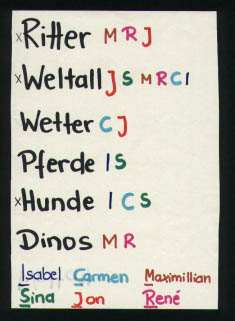 xRitter M R J
xWeltall J S M R C I
Wetter C J
Pferde I S
xHunde I C S
Dinos M R
Isabel Carmen Maximillian
Sina Jon René